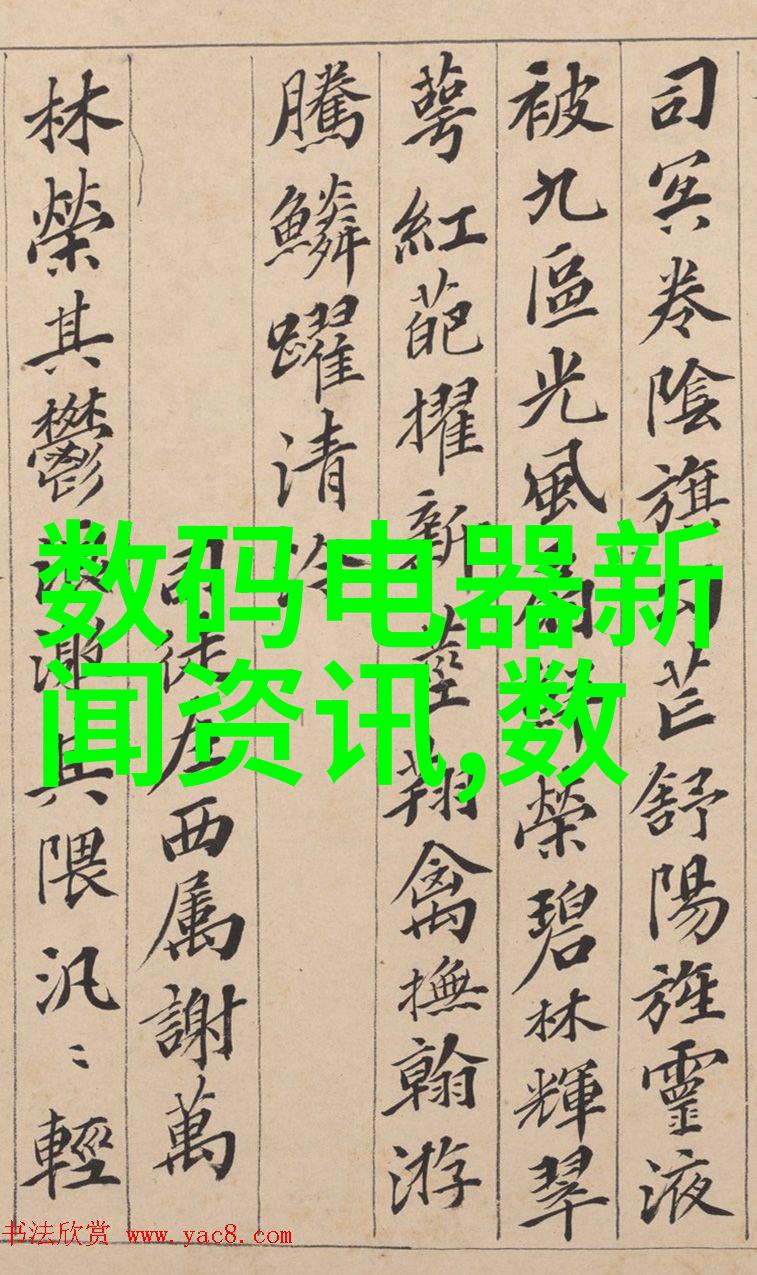 司冥卷陰旗芒舒陽旌靈液
被九區光風榮碧林輝翠
萼紅葩擢新莖翔禽撫翰游
騰鱗躍清
司徒左西属謝萬
林榮其鬱激其隈汎〻輕
数码电器新
闻资讯,数
书法欣赏 www.yac8.com